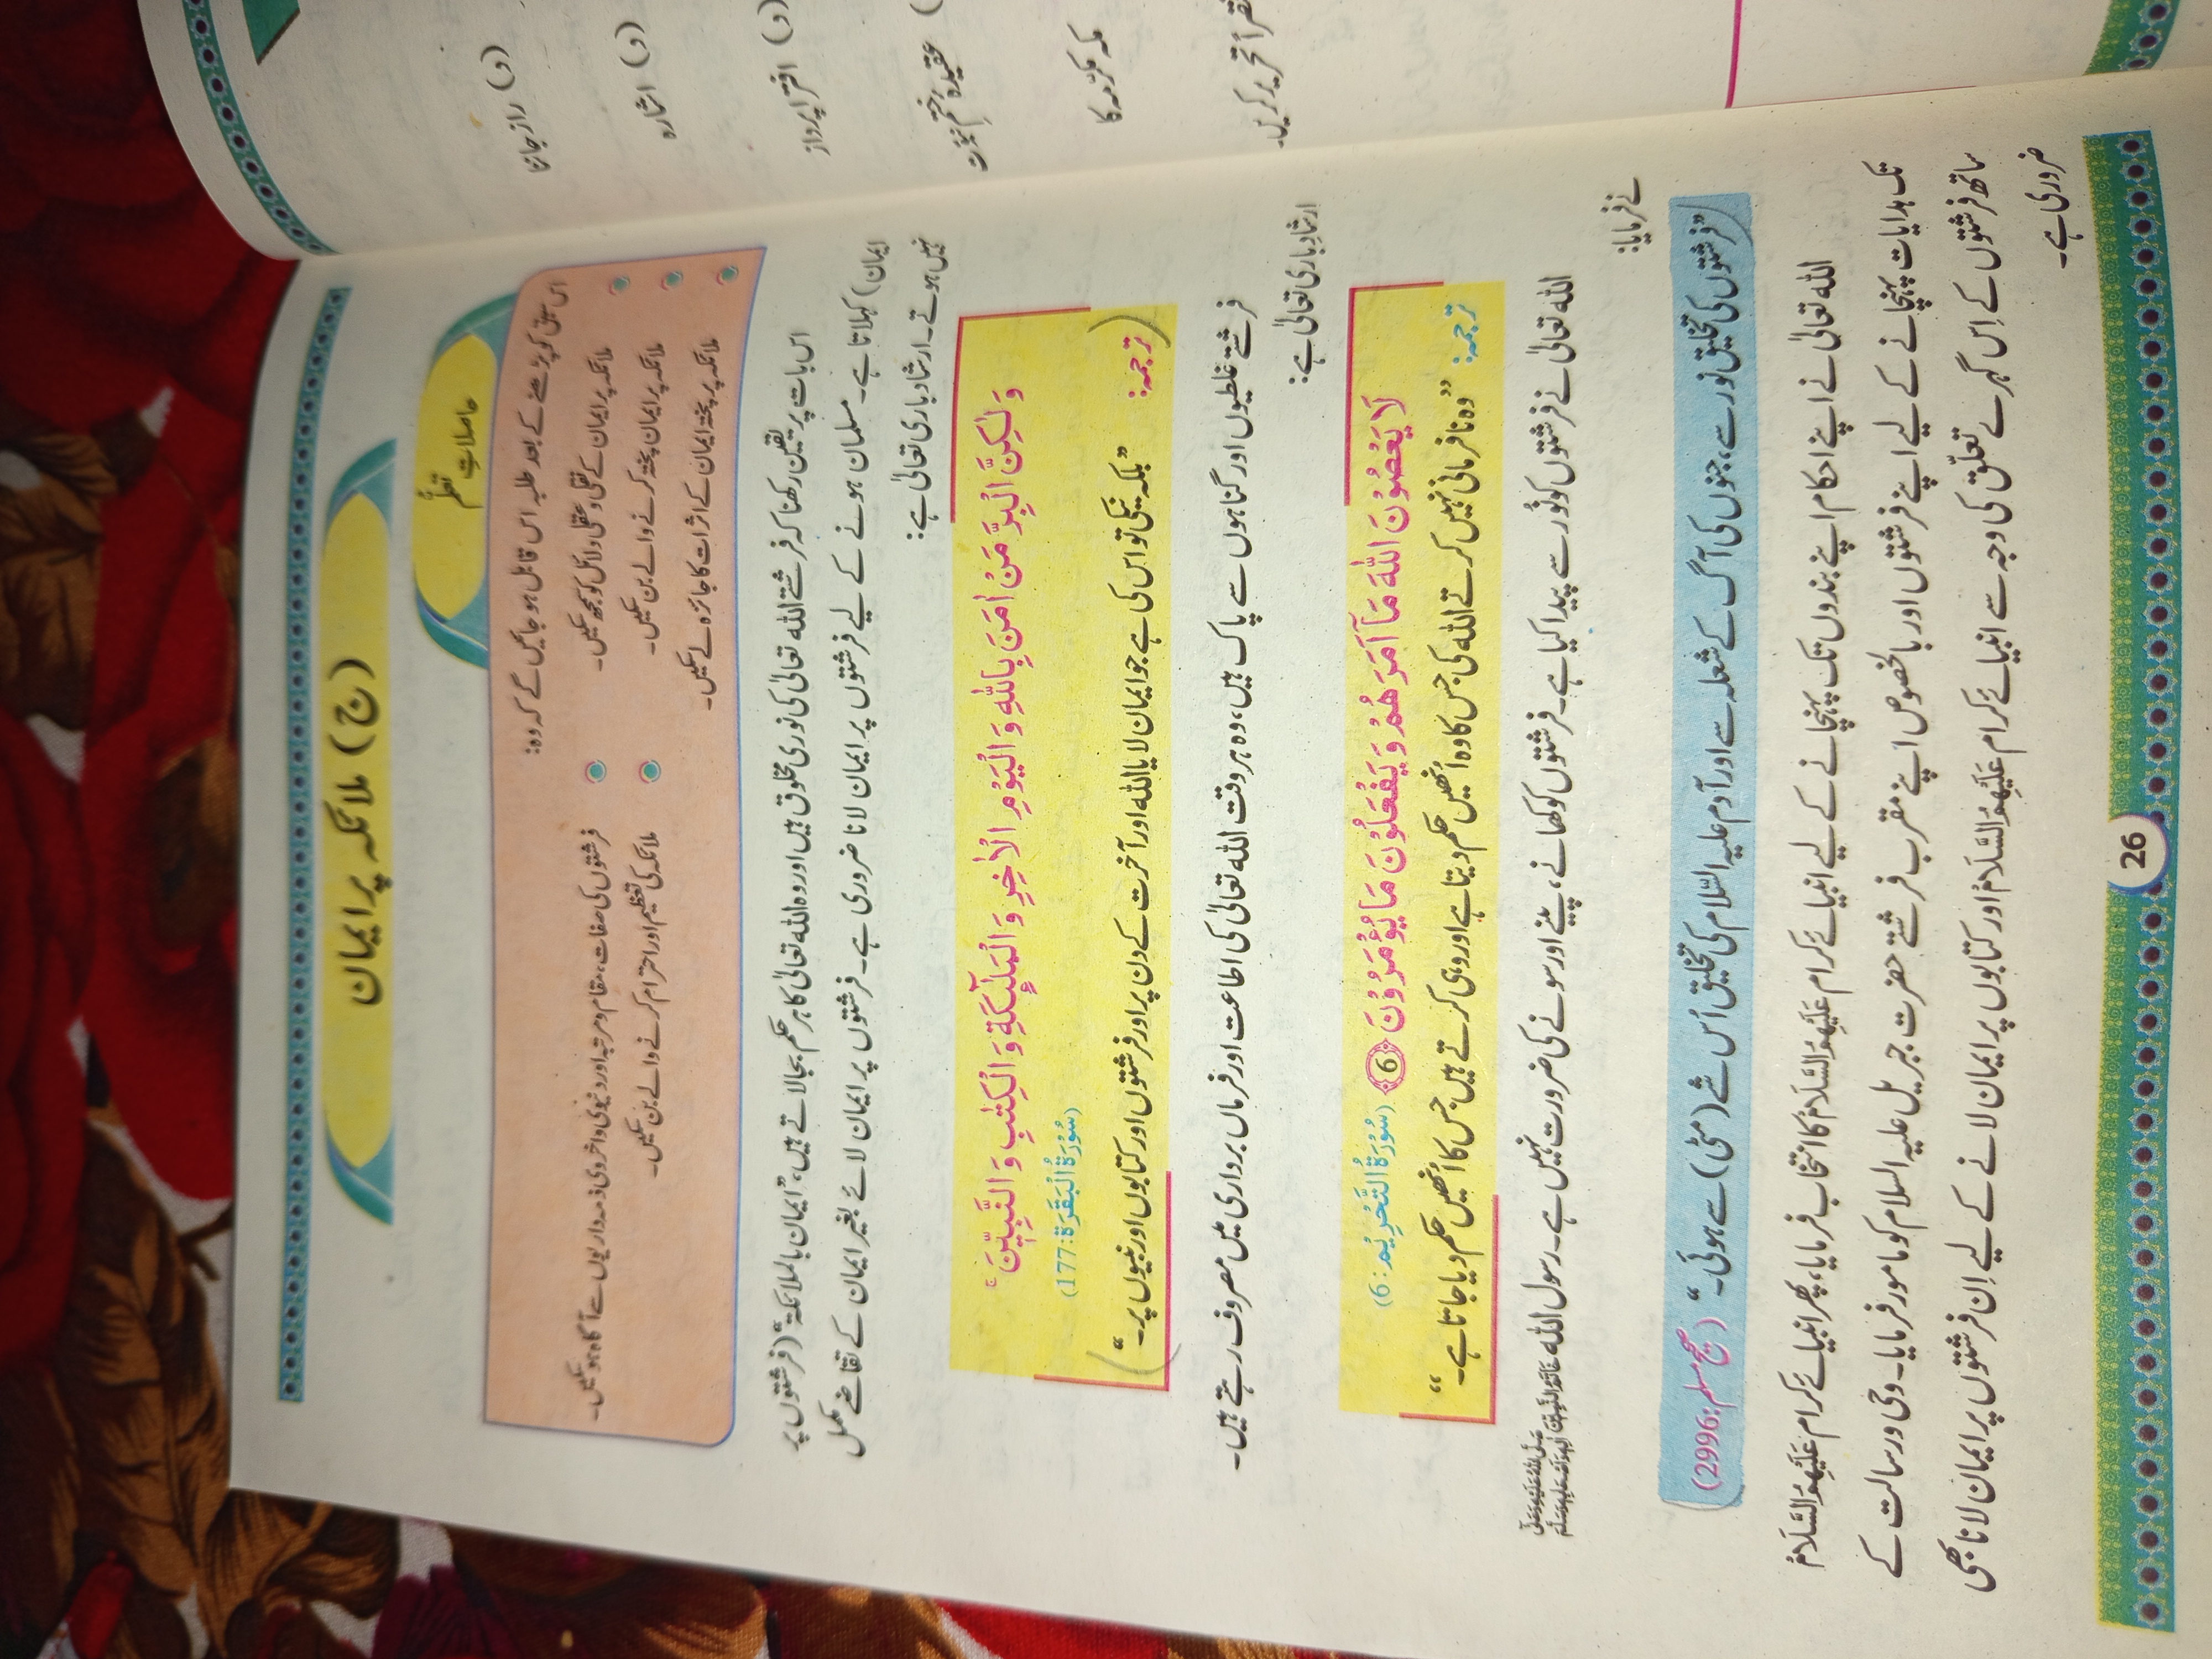 (ج) ملائکہ پر ایمان
حاصلاتِ تعلّم
اس سبق کو پڑھنے کے بعد طلبہ اس قابل ہو جائیں گے کہ وہ:
ملائکہ پر ایمان کے نقلی و عقلی دلائل کو سمجھ سکیں۔
فرشتوں کی صفات، مقام و مرتبہ اور دنیوی و اخروی ذمہ داریوں سے آگاہ ہو سکیں۔
ملائکہ پر ایمان پختہ کرنے والے بن سکیں۔
ملائکہ کی تعظیم اور احترام کرنے والے بن سکیں۔
ملائکہ پر پختہ ایمان کے اثرات کا جائزہ لے سکیں۔
اس بات پر یقین رکھنا کہ فرشتے اللہ تعالیٰ کی نوری مخلوق ہیں اور وہ اللہ تعالیٰ کا ہر حکم بجا لاتے ہیں، ”ایمان بالملائکۃ“ (فرشتوں پر
ایمان) کہلاتا ہے۔ مسلمان ہونے کے لیے فرشتوں پر ایمان لانا ضروری ہے۔ فرشتوں پر ایمان لائے بغیر ایمان کے تقاضے مکمل
نہیں ہوتے۔ ارشادِ باری تعالیٰ ہے:
وَلٰكِنَّ الْبِرَّ مَنْ اٰمَنَ بِاللّٰهِ وَ الْيَوْمِ الْاٰخِرِ وَ الْمَلٰٓئِكَةِ وَ الْكِتٰبِ وَ النَّبِيّٖنَ ۚ
(سُوْرَۃُ الْبَقَرَۃ: 177)
ترجمہ: ”بلکہ نیکی تو اس کی ہے جو ایمان لایا اللہ اور آخرت کے دن پر اور فرشتوں اور کتابوں اور نبیوں پر۔“
فرشتے غلطیوں اور گناہوں سے پاک ہیں، وہ ہر وقت اللہ تعالیٰ کی اطاعت اور فرماں برداری میں مصروف رہتے ہیں۔
ارشادِ باری تعالیٰ ہے:
لَا يَعْصُوْنَ اللّٰهَ مَاۤ اَمَرَهُمْ وَ يَفْعَلُوْنَ مَا يُؤْمَرُوْنَ ﴿6﴾ (سُوْرَۃُ التَّحْرِیْم: 6)
ترجمہ: ”وہ نافرمانی نہیں کرتے اللہ کی جس کا وہ اُنھیں حکم دیتا ہے اور وہی کرتے ہیں جس کا اُنھیں حکم دیا جاتا ہے۔“
اللہ تعالیٰ نے فرشتوں کو نُور سے پیدا کیا ہے۔ فرشتوں کو کھانے، پینے اور سونے کی ضرورت نہیں ہے۔ رسول اللہ
نے فرمایا:
”فرشتوں کی تخلیق نور سے، جنوں کی آگ کے شعلہ سے اور آدم علیہ السّلام کی تخلیق اُس شے (مٹی) سے ہوئی۔“ (صحیح مسلم: 2996)
اللہ تعالیٰ نے اپنے احکام اپنے بندوں تک پہنچانے کے لیے انبیائے کرام عَلَیْهِمُ السَّلَامُ کا انتخاب فرمایا، پھر انبیائے کرام عَلَیْهِمُ السَّلَامُ
تک ہدایات پہنچانے کے لیے اپنے فرشتوں اور بالخصوص اپنے مقرب فرشتے حضرت جبریل علیہ السلام کو مامور فرمایا۔ وحی و رسالت کے
ساتھ فرشتوں کے اِس گہرے تعلّق کی وجہ سے انبیائے کرام عَلَیْهِمُ السَّلَامُ اور کتابوں پر ایمان لانے کے لیے اِن فرشتوں پر ایمان لانا بھی
ضروری ہے۔
26
(د) راز جاننا
(د) اشارہ
(د) افترا پرداز
عقیدۂ ختمِ نبوّت
مکہ مکرّمہ کا
تحریر کریں۔